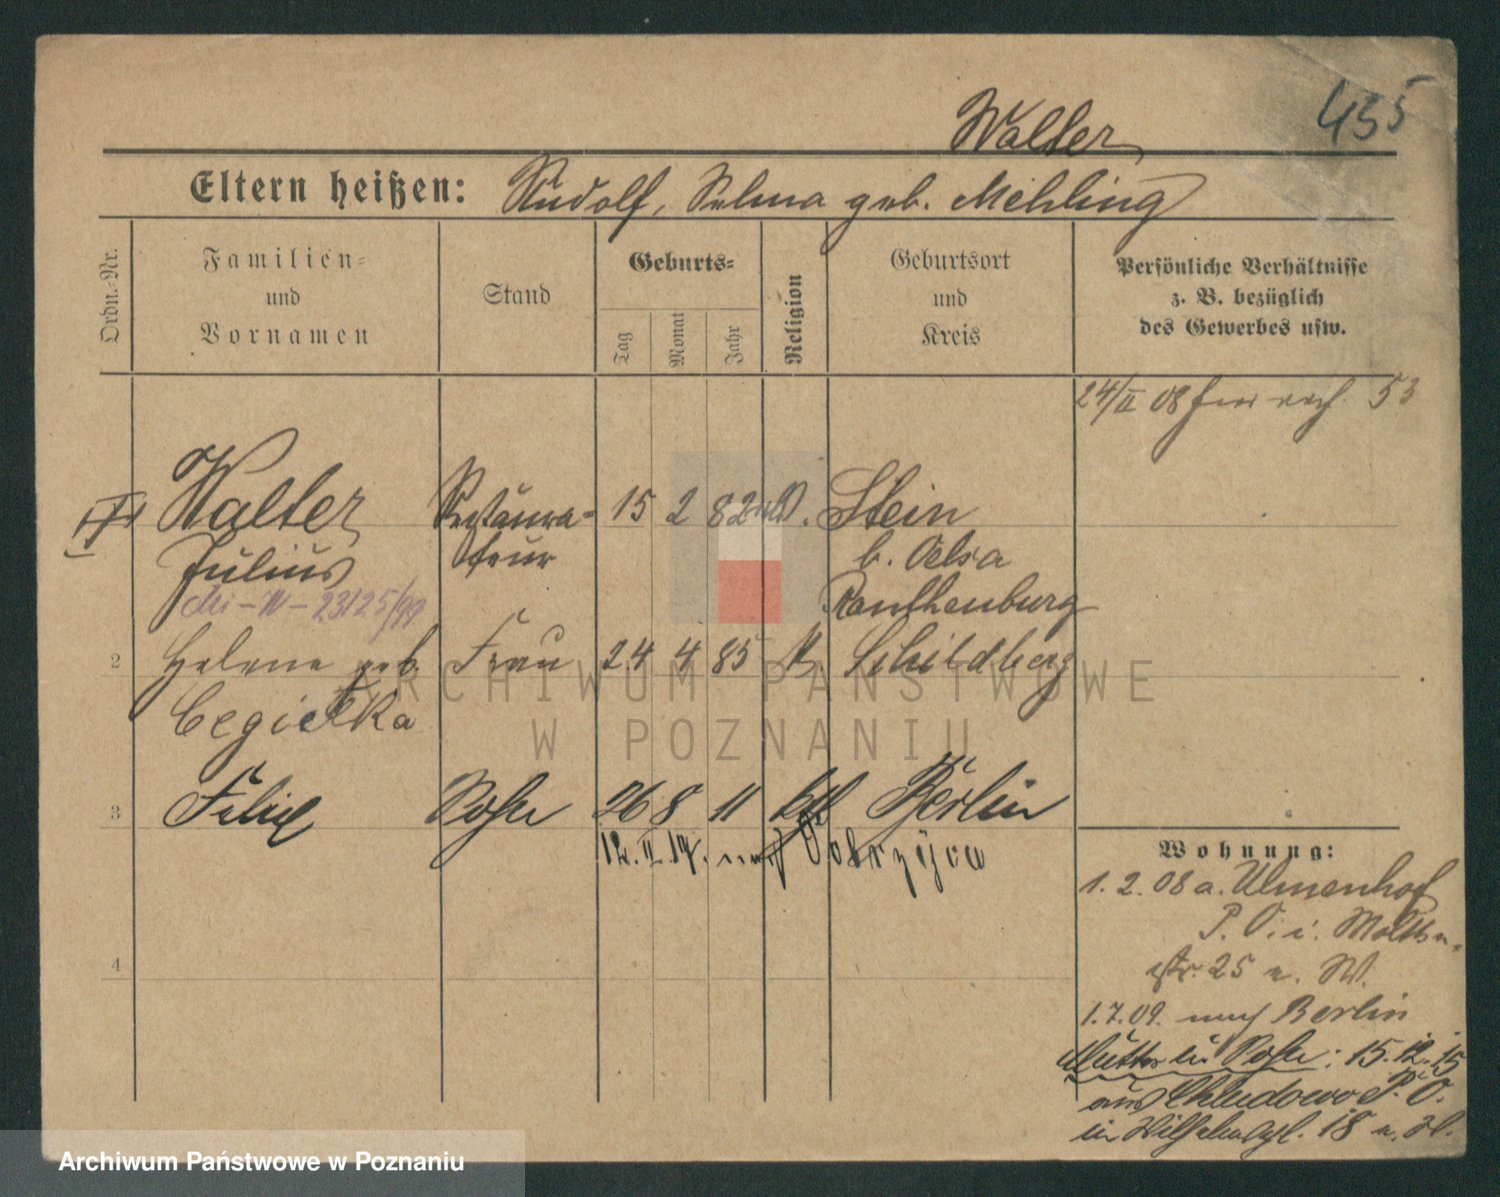 Walter
435
Eltern heißen: Rudolf, Selma geb. Mehling
Ordn.-Nr.
Familien-
und
Vornamen
Stand
Geburts-
Tag
Monat
Jahr
Religion
Geburtsort
und
Kreis
Persönliche Verhältnisse
z. B. bezüglich
des Gewerbes usw.
24/II 08 53
Walter Restaura- 15 2 82 Stein
Julius teur b. Oelsa
23125/99 Rauthenburg
2 Helene geb. Frau 24 4 85 k Schildberg
Cegielka
3 Felix Sohn 26 8 11 ktl Berlin
12. II. 17. nach Dobrzyca
4
Wohnung:
1. 2. 08 a. Ulmenhof
P. O. i. Moltke-
str. 25 n. W.
1. 7. 09. nach Berlin
Mutter u Sohn: 15. 12. 15
aus Chludowo P. O.
in 18 n.
ARCHIWUM PAŃSTWOWE
W POZNANIU
Archiwum Państwowe w Poznaniu